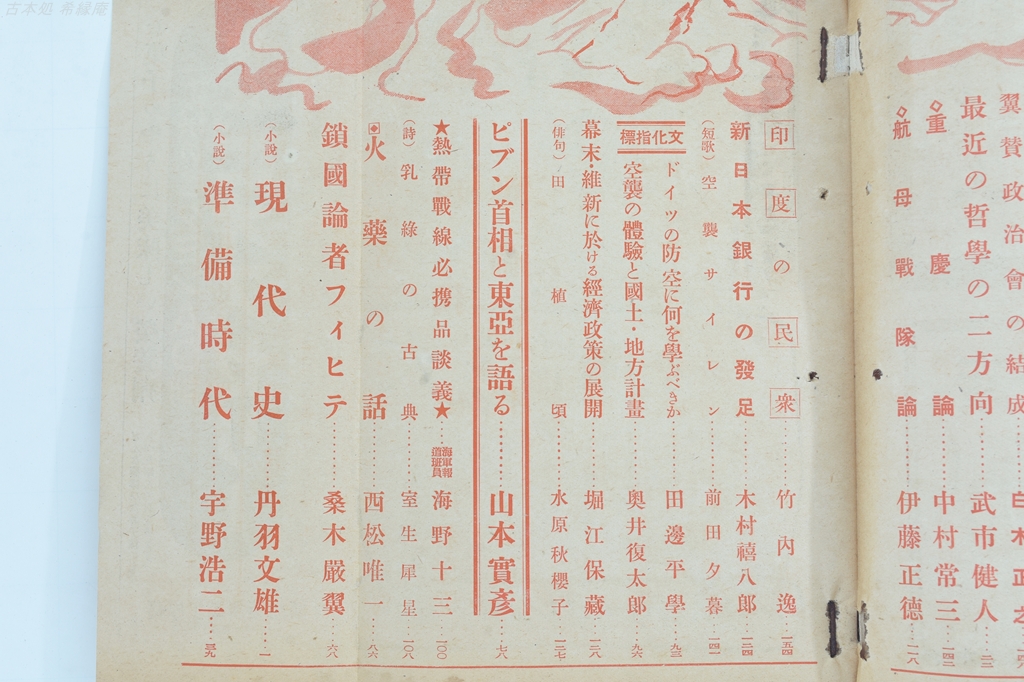 古本処 希縁庵
翼贊政治會の結成
最近の哲學の二方向……武市健人 二三
◇重慶論……中村常三 一四二
◇航母戰隊論……伊藤正德 一一八
印度の民衆……竹內逸 一五四
新日本銀行の發足……木村禧八郎 一三四
(短歌)空襲サイレン……前田夕暮 一四一
文化指標
ドイツの防空に何を學ぶべきか……田邊平學 九三
空襲の體驗と國土・地方計畫……奧井復太郎 九六
幕末・維新に於ける經濟政策の展開……堀江保藏 三八
(俳句)田植頃……水原秋櫻子 一三七
ピブン首相と東亞を語る……山本實彥 七八
★熱帶戰線必携品談義★……海軍報道班員 海野十三 一〇〇
(詩)乳綠の古典……室生犀星 一〇八
火藥の話……西松唯一 八六
鎖國論者フィヒテ……桑木嚴翼 六八
(小說)現代史……丹羽文雄 一
(小說)準備時代……宇野浩二